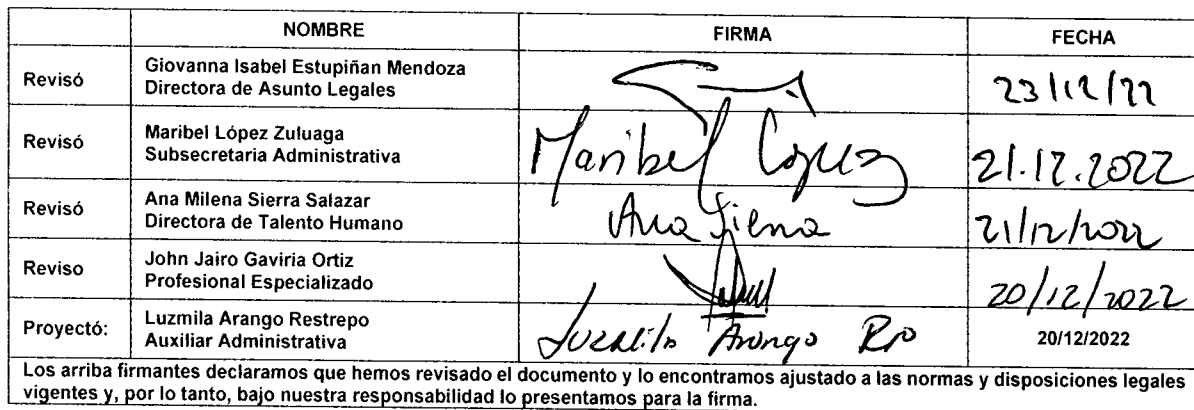 NOMBRE FIRMA FECHA
Revisó Giovanna Isabel Estupiñan Mendoza
Directora de Asunto Legales 23/12/22
Revisó Maribel López Zuluaga
Subsecretaria Administrativa Maribel López 21.12.2022
Revisó Ana Milena Sierra Salazar
Directora de Talento Humano Ana Sierra 21/12/2022
Reviso John Jairo Gaviria Ortiz
Profesional Especializado 20/12/2022
Proyectó: Luzmila Arango Restrepo
Auxiliar Administrativa Luzmila Arango Rpo 20/12/2022
Los arriba firmantes declaramos que hemos revisado el documento y lo encontramos ajustado a las normas y disposiciones legales
vigentes y, por lo tanto, bajo nuestra responsabilidad lo presentamos para la firma.